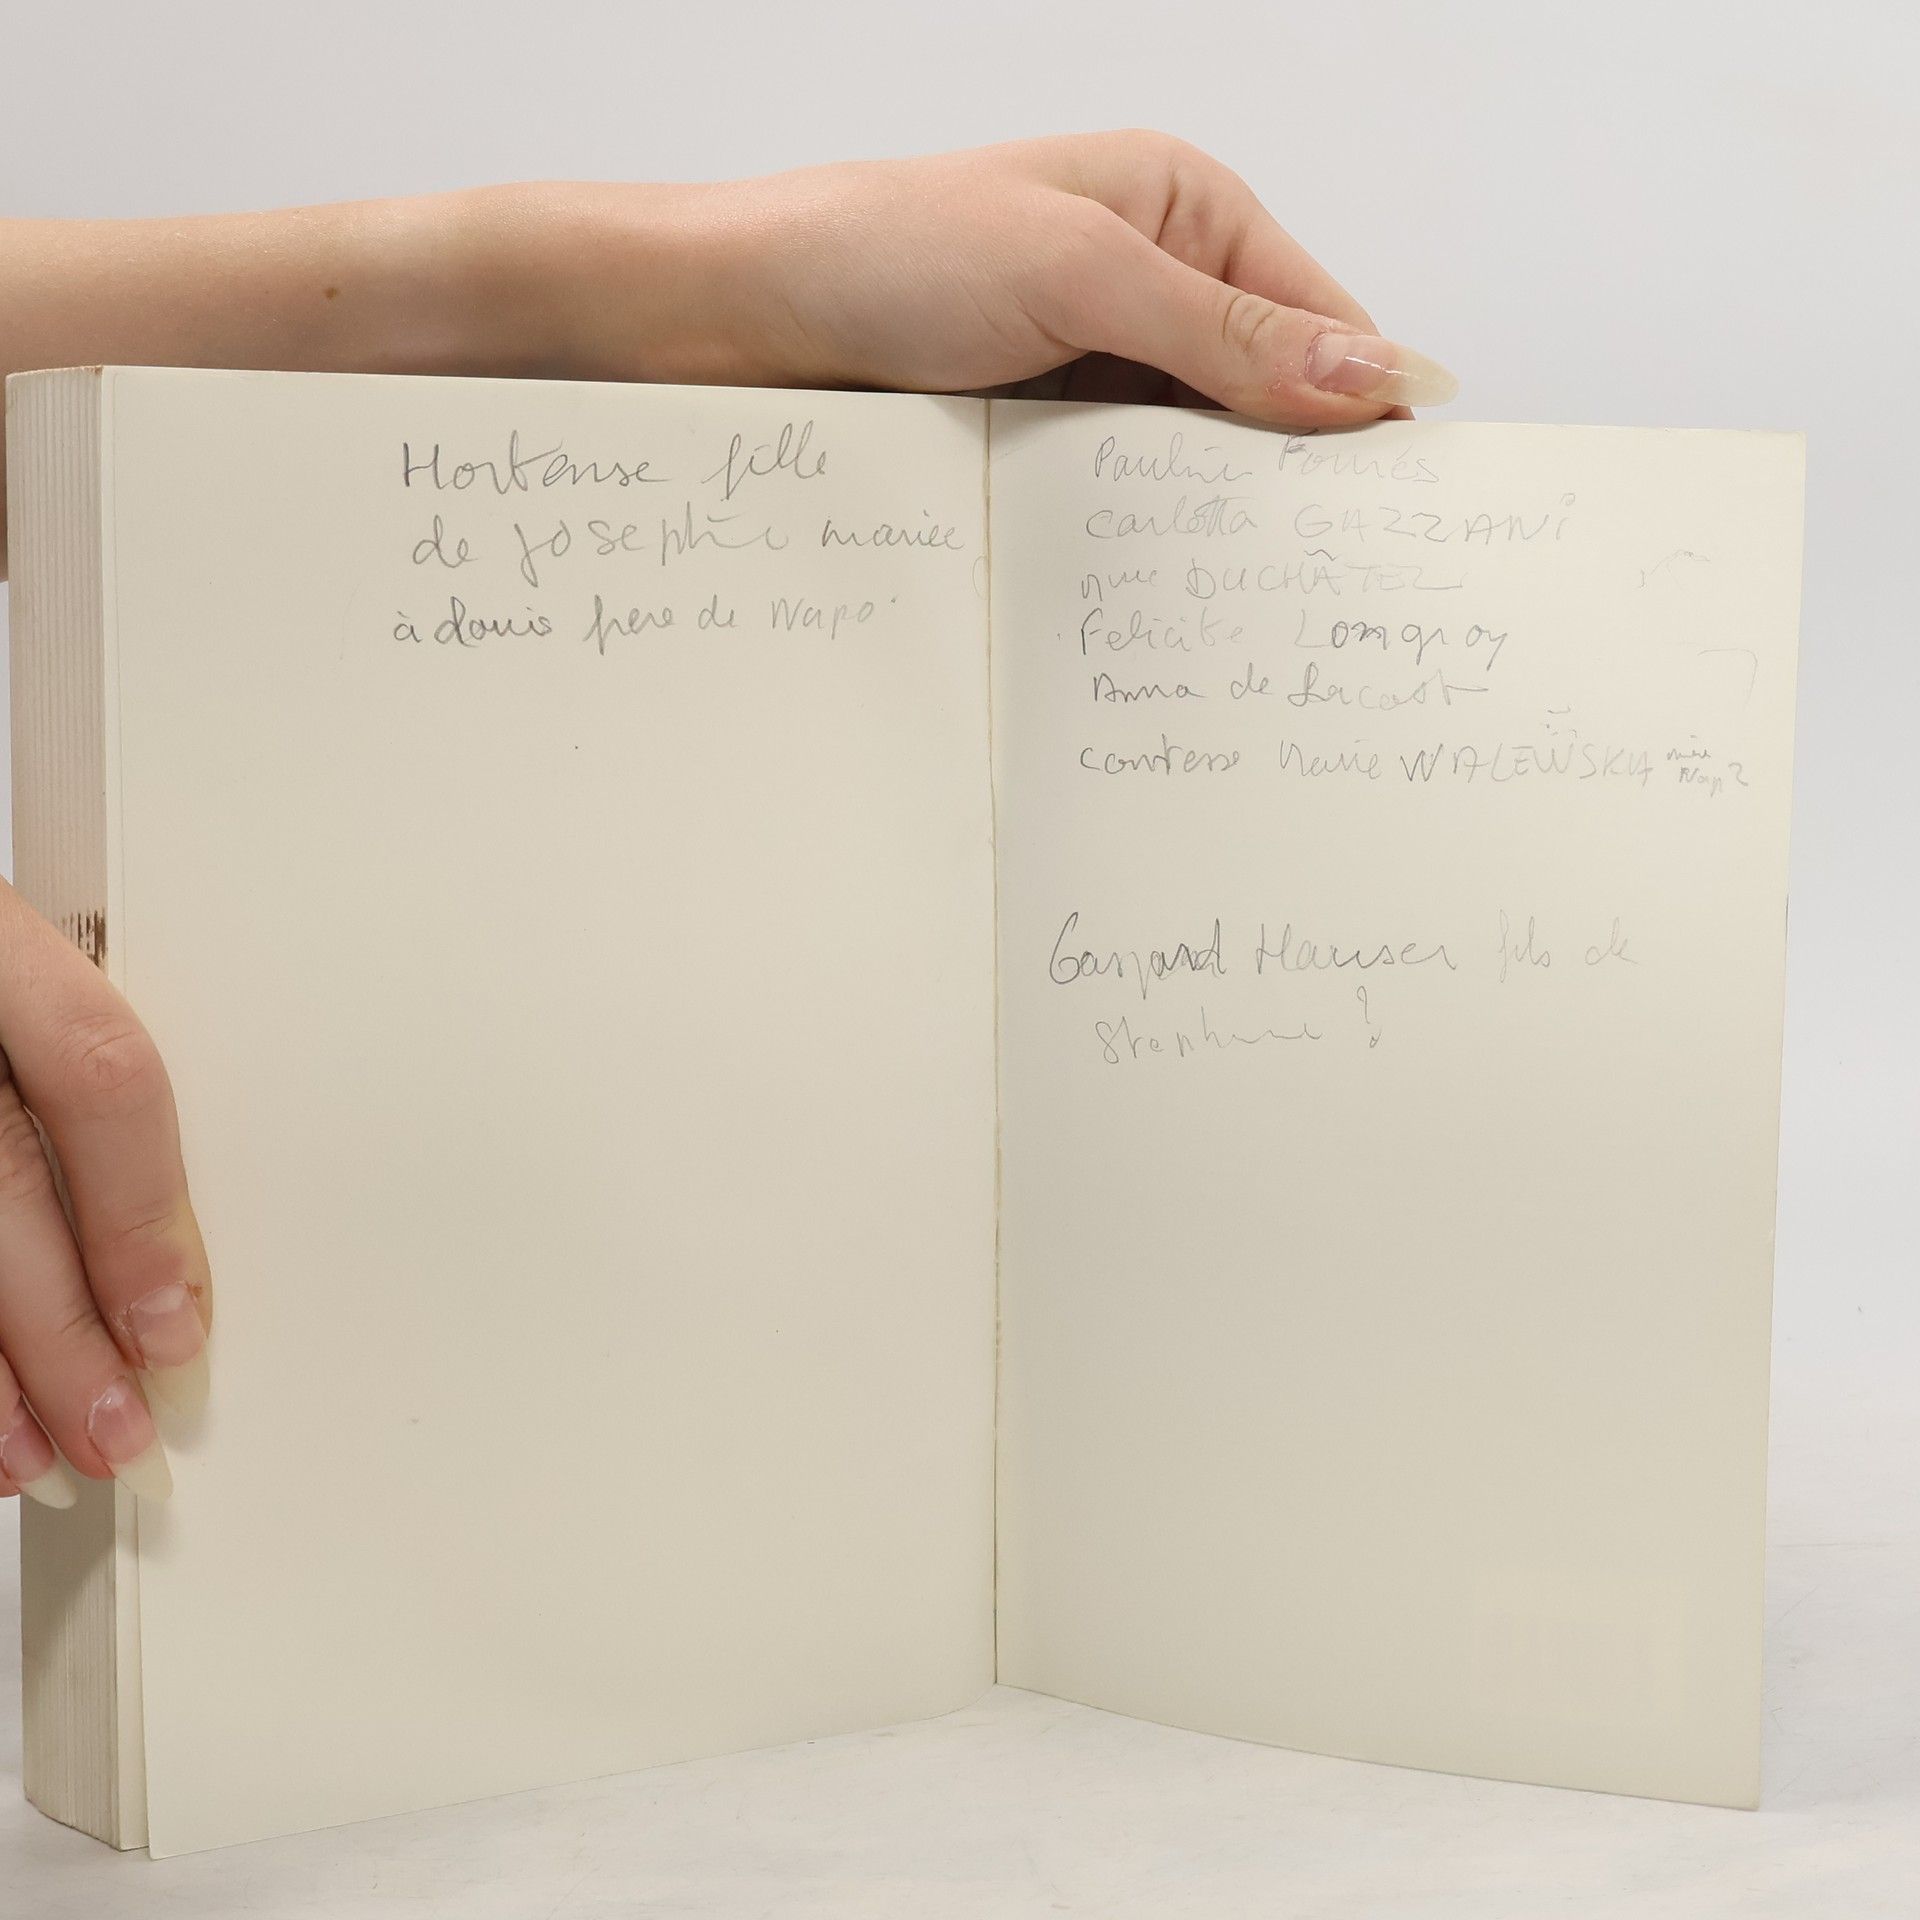 Hortense fille
de Joséphine mariée
à Louis frere de Napo.
Pauline Fourés
Carlotta GAZZANI
Mme DUCHÂTEL
Felicite Longroy
Anna de Lacoste
comtesse Marie WALEWSKA mère
Nap 2
Gaspard Hauser fils de
Stephanie ?